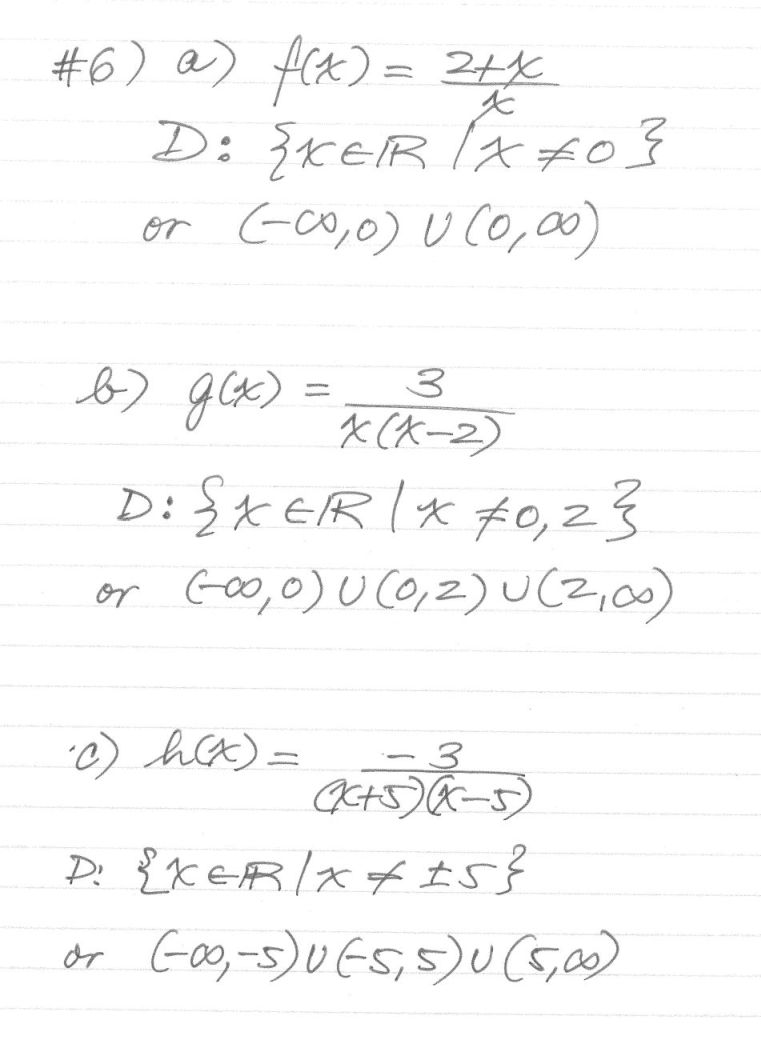 #6) a) f(x) = 2+x / x
D: {x∈ℝ | x ≠ 0}
or (-∞,0) ∪ (0,∞)
b) g(x) = 3 / x(x-2)
D: {x∈ℝ | x ≠ 0,2}
or (-∞,0) ∪ (0,2) ∪ (2,∞)
c) h(x) = -3 / (x+5)(x-5)
D: {x∈ℝ | x ≠ ±5}
or (-∞,-5) ∪ (-5,5) ∪ (5,∞)